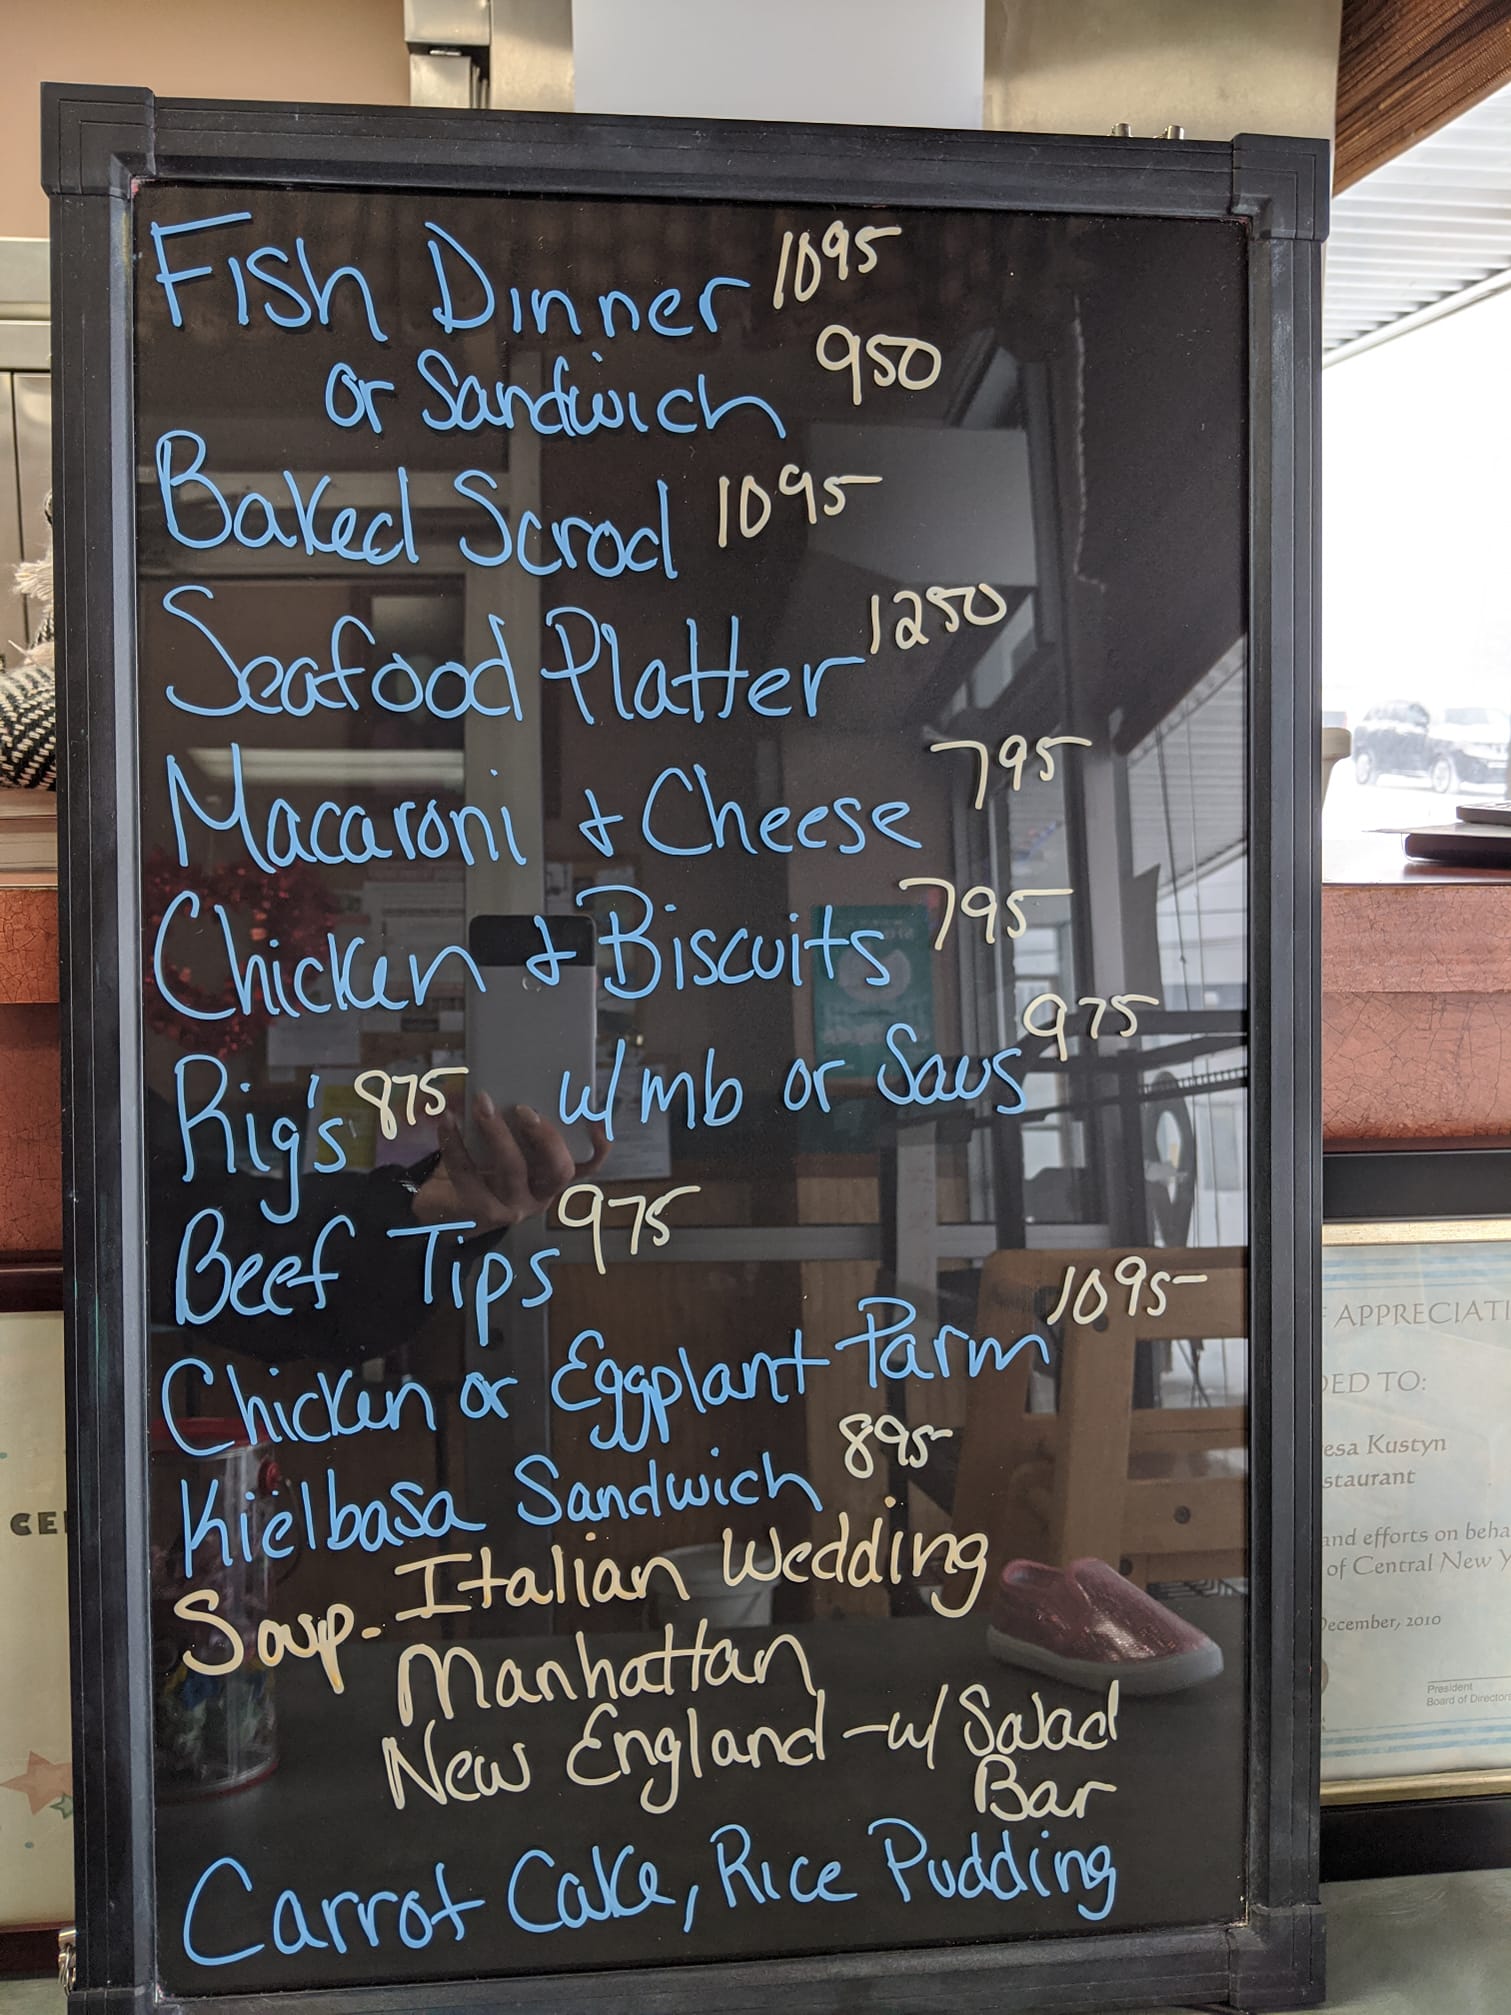 Fish Dinner 1095
or Sandwich 950
Baked Scrod 1095
Seafood Platter 1250
Macaroni + Cheese 795
Chicken + Biscuits 795
Rig's 875 w/mb or Saus 975
Beef Tips 975
Chicken or Eggplant Parm 1095
Kielbasa Sandwich 895
Soup - Italian Wedding
Manhattan
New England - w/ Salad
Bar
Carrot Cake, Rice Pudding
APPRECIAT
ED TO:
esa Kustyn
staurant
and efforts on beha
of Central New Y
December, 2010
President
Board of Director
CE